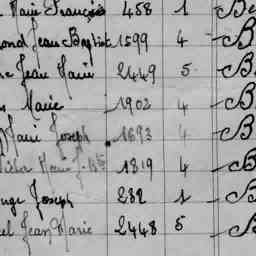 Marie François 458 1 Be
ond Jean Baptiste 1599 4 B
e Jean Marie 2449 5 B
Marie 1902 4 B
Marie Joseph 1693 4 B
Marie J. Bte 1819 4 B
Joseph 232 1 B
el Jean Marie 2448 5 B